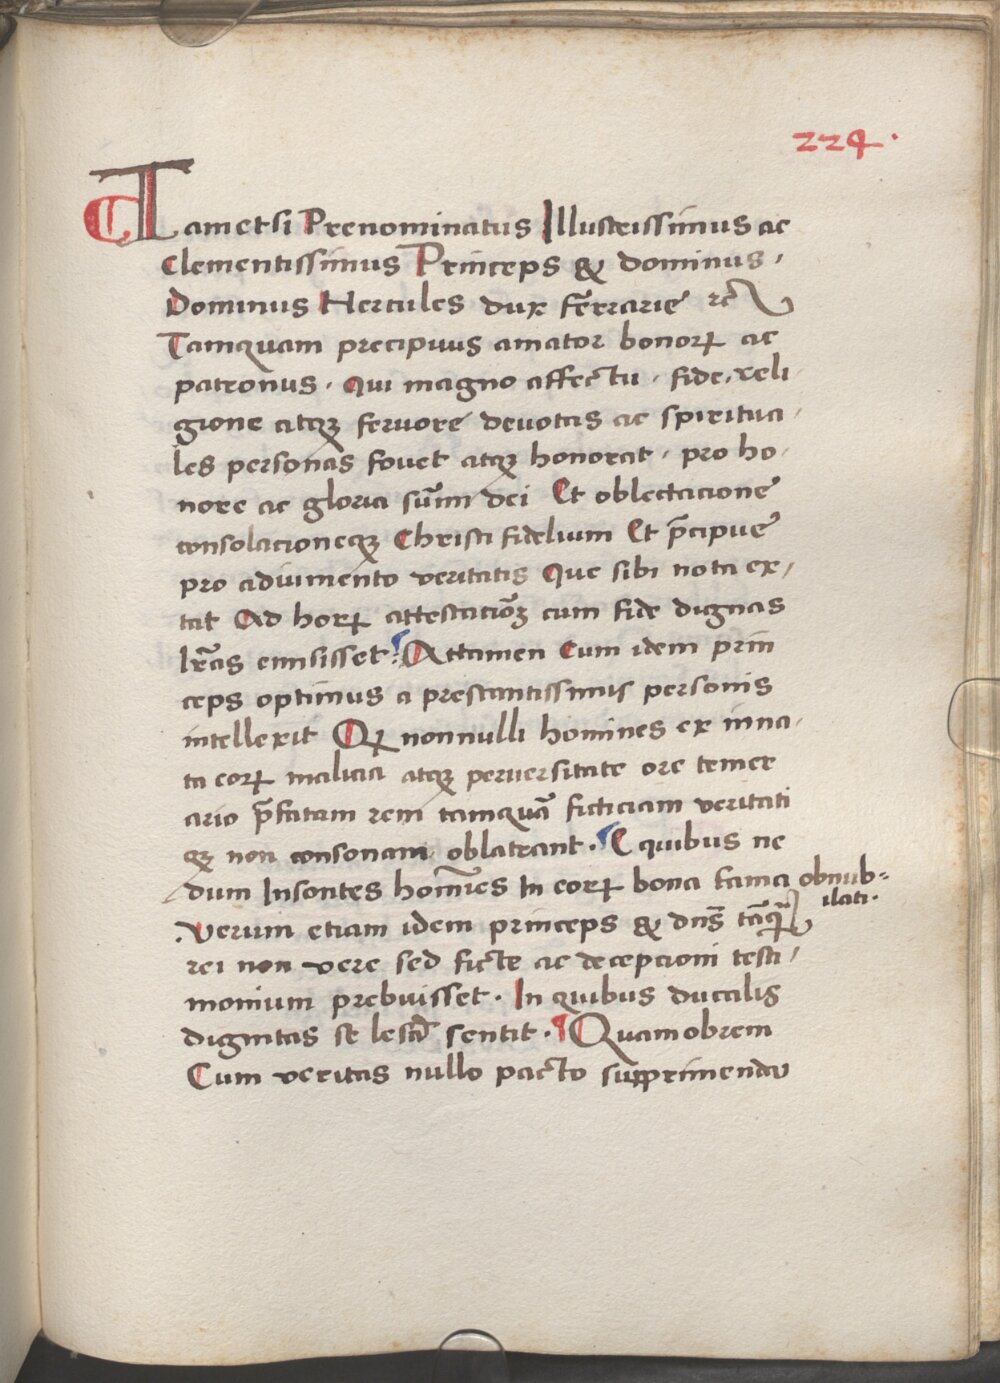 224.
Tametsi Prenominatus Illustrissimus ac
Clementissimus Princeps & dominus,
Dominus Hercules dux Ferrarie ⁊c̃
Tamquam precipuus amator bonoꝝ ac
patronus. Qui magno affectu. fide, reli-
gione atqꝫ feruore deuotas ac spiritua-
les personas fouet atqꝫ honorat. pro ho-
nore ac gloria sum̃i dei Et oblectacione
consolacioneqꝫ Christi fidelium Et p̃cipue
pro adiumento veritatis Que sibi nota ex-
tat Ad horꝝ attestacioꝫ cum fide dignas
lr̃as emisisset: Attamen Cum idem prin
ceps optimus a prestantissimis personis
intellexit Qꝝ nonnulli homines ex inna-
ta eorꝝ malicia atqꝫ peruersitate ore temer
ario p̃fatam rem tamquã ficticiam veritati
qꝫ non consonam oblatrant. E quibus ne
dum Insontes homĩes In eorꝝ bona fama obnub-
ilati.
.Verum etiam idem princeps & dñs tãqꝫ
rei non vere sed ficte ac decepcioni testi-
monium prebuisset. In quibus ducalis
dignitas se lesã sentit. Quamobrem
Cum veritas nullo pacto supprimenda